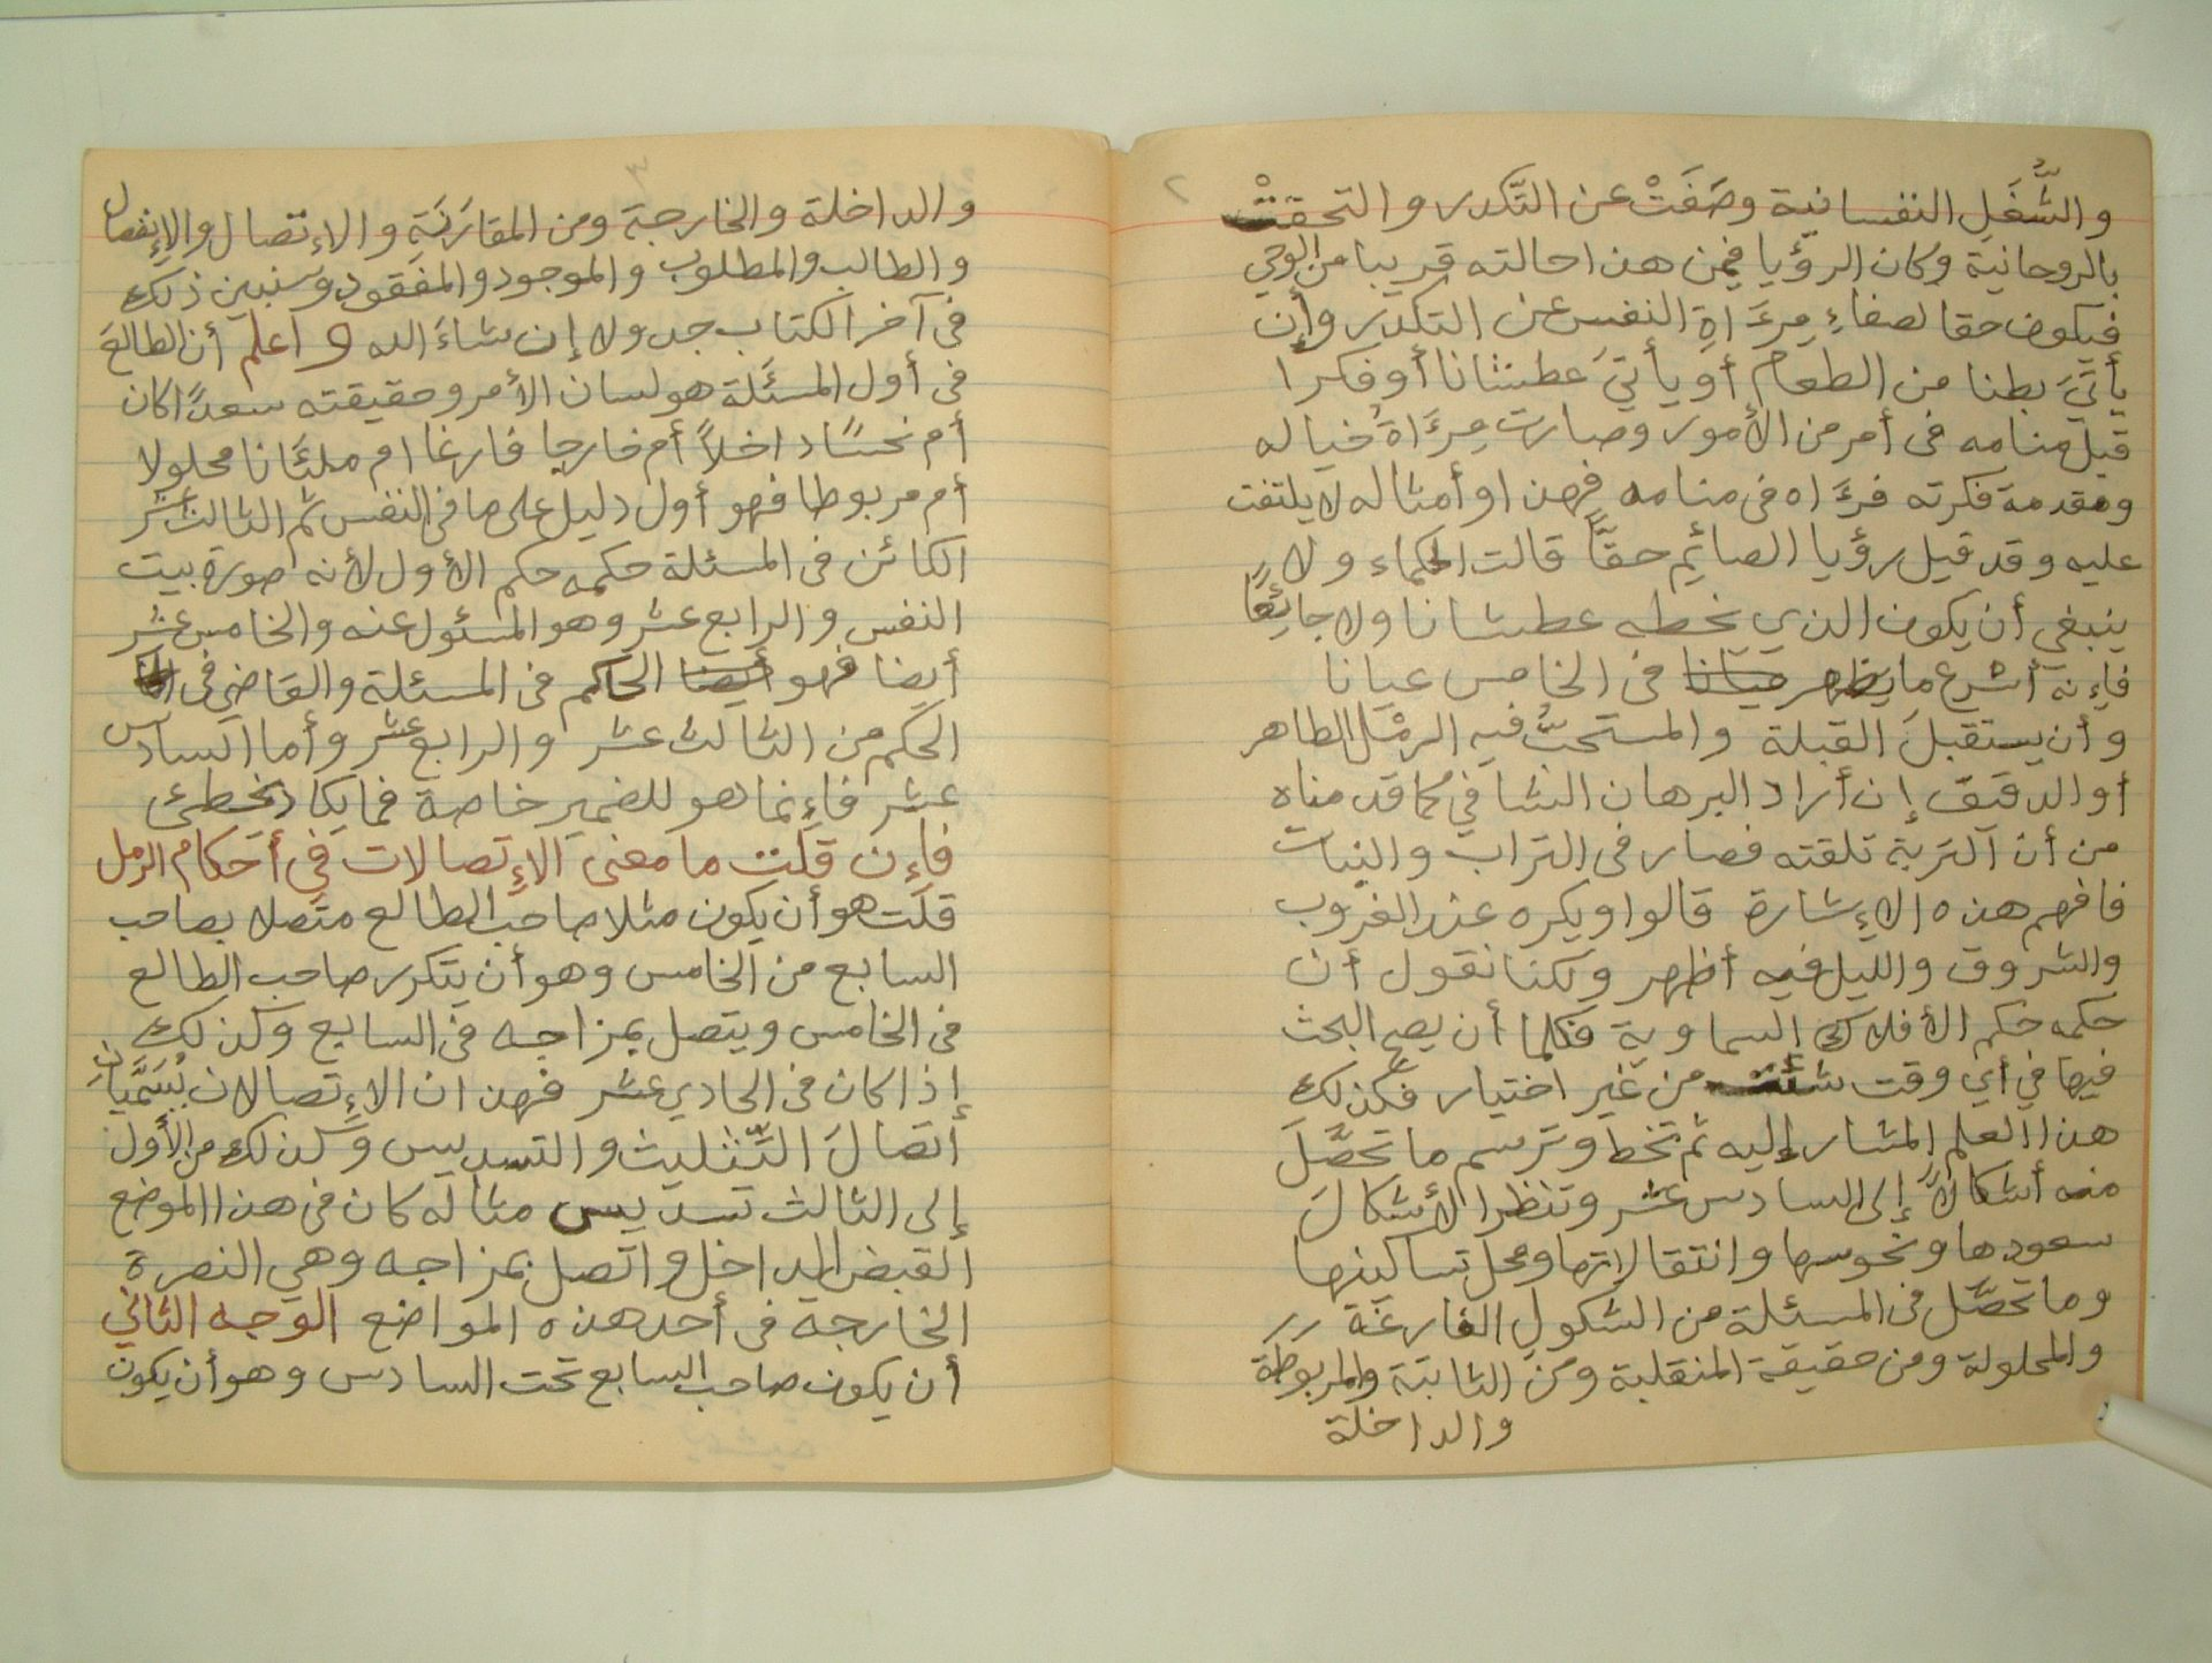 ٢
والشُّغَلِ النفسانية وصَفَتْ عن التّكدر والتحقتْ
بالروحانية وكان الرؤيا فمن هذا حالته قريبا من الوحي
فيكون حقا لصفاءِ مِرءَاةِ النفس عن التكدير وإن
يأتيَ بطنا من الطعام أو يأتيَ عطشانا أو فكرا
قبل منامه في أمر من الأمور وصارت مِرءَاةُ خياله
ومقدمة فكرته فرءَاه في منامه فهذا وأمثاله لا يلتفت
عليه وقد قيل رؤيا الصائم حقًّا قالت الحكماء ولا
ينبغي أن يكون الذي يخطه عطشانا ولا جائعًا
فإنه أشرع ما يظهر في الخامس عيانا
وأن يستقبلَ القبلة والمستحبُّ فيه الرمْل الطاهر
أو الدقيق إن أراد البرهان الشافي مما قدمناه
من أن التربة تلقته فصار في التراب والنبات
فافهم هذه الإشارة قالوا ويكره عند الغروب
والشروق والليل فيه أظهر ولكنا نقول أن
حكمه حكم الأفلاك السماوية فكلما أن يصح البحث
فيها في أي وقت شئت من غير اختيار فكذلك
هذا العلم المشار إليه ثم تخط وترسم ما تحصَّلَ
منه أشكالاً إلى السادس عشر وتنظر الأشكالَ
سعودها ونحوسها وانتقالاتها ومحل تساكينها
وما تحصَّل في المسئلة من الشكول الفارغة
والمحلولة ومن حقيقة المنقلبة ومن الثابتة والمربوطة
والداخلة
٣
والداخلة والخارجة ومن المقارَنَةِ والإتصال والإنفصال
والطالب والمطلوب والموجود والمفقود وسنبين ذلك
في آخر الكتاب جدولا إن شاءَ الله واعلم أن الطالعَ
في أول المسئَلة هو لسان الأمر وحقيقته سعدًا كان
أم نحسًا داخلاً أم خارجا فارغا ام ملئَانا محلولا
أم مربوطا فهو أول دليل على ما في النفس ثم الثالث عشر
الكائن في المسئلة حكمه حكم الأول لأنه صورة بيت
النفس والرابع عشر وهو المسئول عنه والخامس عشر
أيضا فهو أيضا الحاكم في المسئلة والقاضي في
الحكم من الثالث عشر والرابع عشر وأما السادس
عشر فإنما هو للضمير خاصة فما يكاد يخطئ
فإن قلت ما معنى الإتصالات في أحكام الرمل
قلت هو أن يكون مثلا صاحب الطالع متصلا بصاحب
السابع من الخامس وهو أن يتكرر صاحب الطالع
في الخامس ويتصل بمزاجه في السابع وكذلك
إذا كان في الحادي عشر فهذان الإتصالان يُسَمَّيانِ
إتصالَ التّثليث والتسديس وكذلك من الأول
إلى الثالث تسديس مثاله كان في هذا الموضع
القبض الداخل واتصل بمزاجه وهي النصرة
الخارجة في أحد هذه المواضع الوجه الثاني
أن يكون صاحب السابع تحت السادس وهو أن يكون